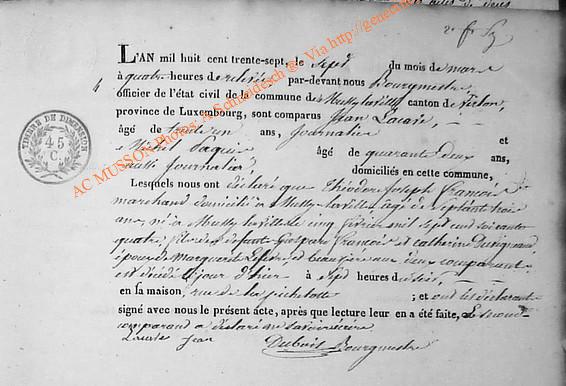 2e f 53
L'AN mil huit cent trente-sept, le sept du mois de mars
à quatre heures de relevée par-devant nous Bourgmestre
officier de l'état civil de la commune de Mussy la ville, canton de Virton,
province de Luxembourg, sont comparus Jean Lacave,
âgé de trente un ans, journalier et
Michel Paquie âgé de quarante deux ans,
aussi journalier domiciliés en cette commune,
Lesquels nous ont déclaré que Théodore Joseph François
marchand domicilié à Mussy la ville âgé de septante trois
ans, né à Mussy la ville le cinq février mil sept cent soixante
quatre, fils des défunt Gaspare François et catherine
époux de Marguerite et beau père aux deux comparants
est décédé le jour d'hier à sept heures du soir,
en sa maison, rue de la ; et ont les déclarants
signé avec nous le présent acte, après que lecture leur en a été faite, le second
comparand a déclaré ne savoir écrire
Jean
Dubois Bourgmestre
TIMBRE DE DIMENSION
45
C.
AC MUSSON Photos: A. Schneidesch @ Via http://genea